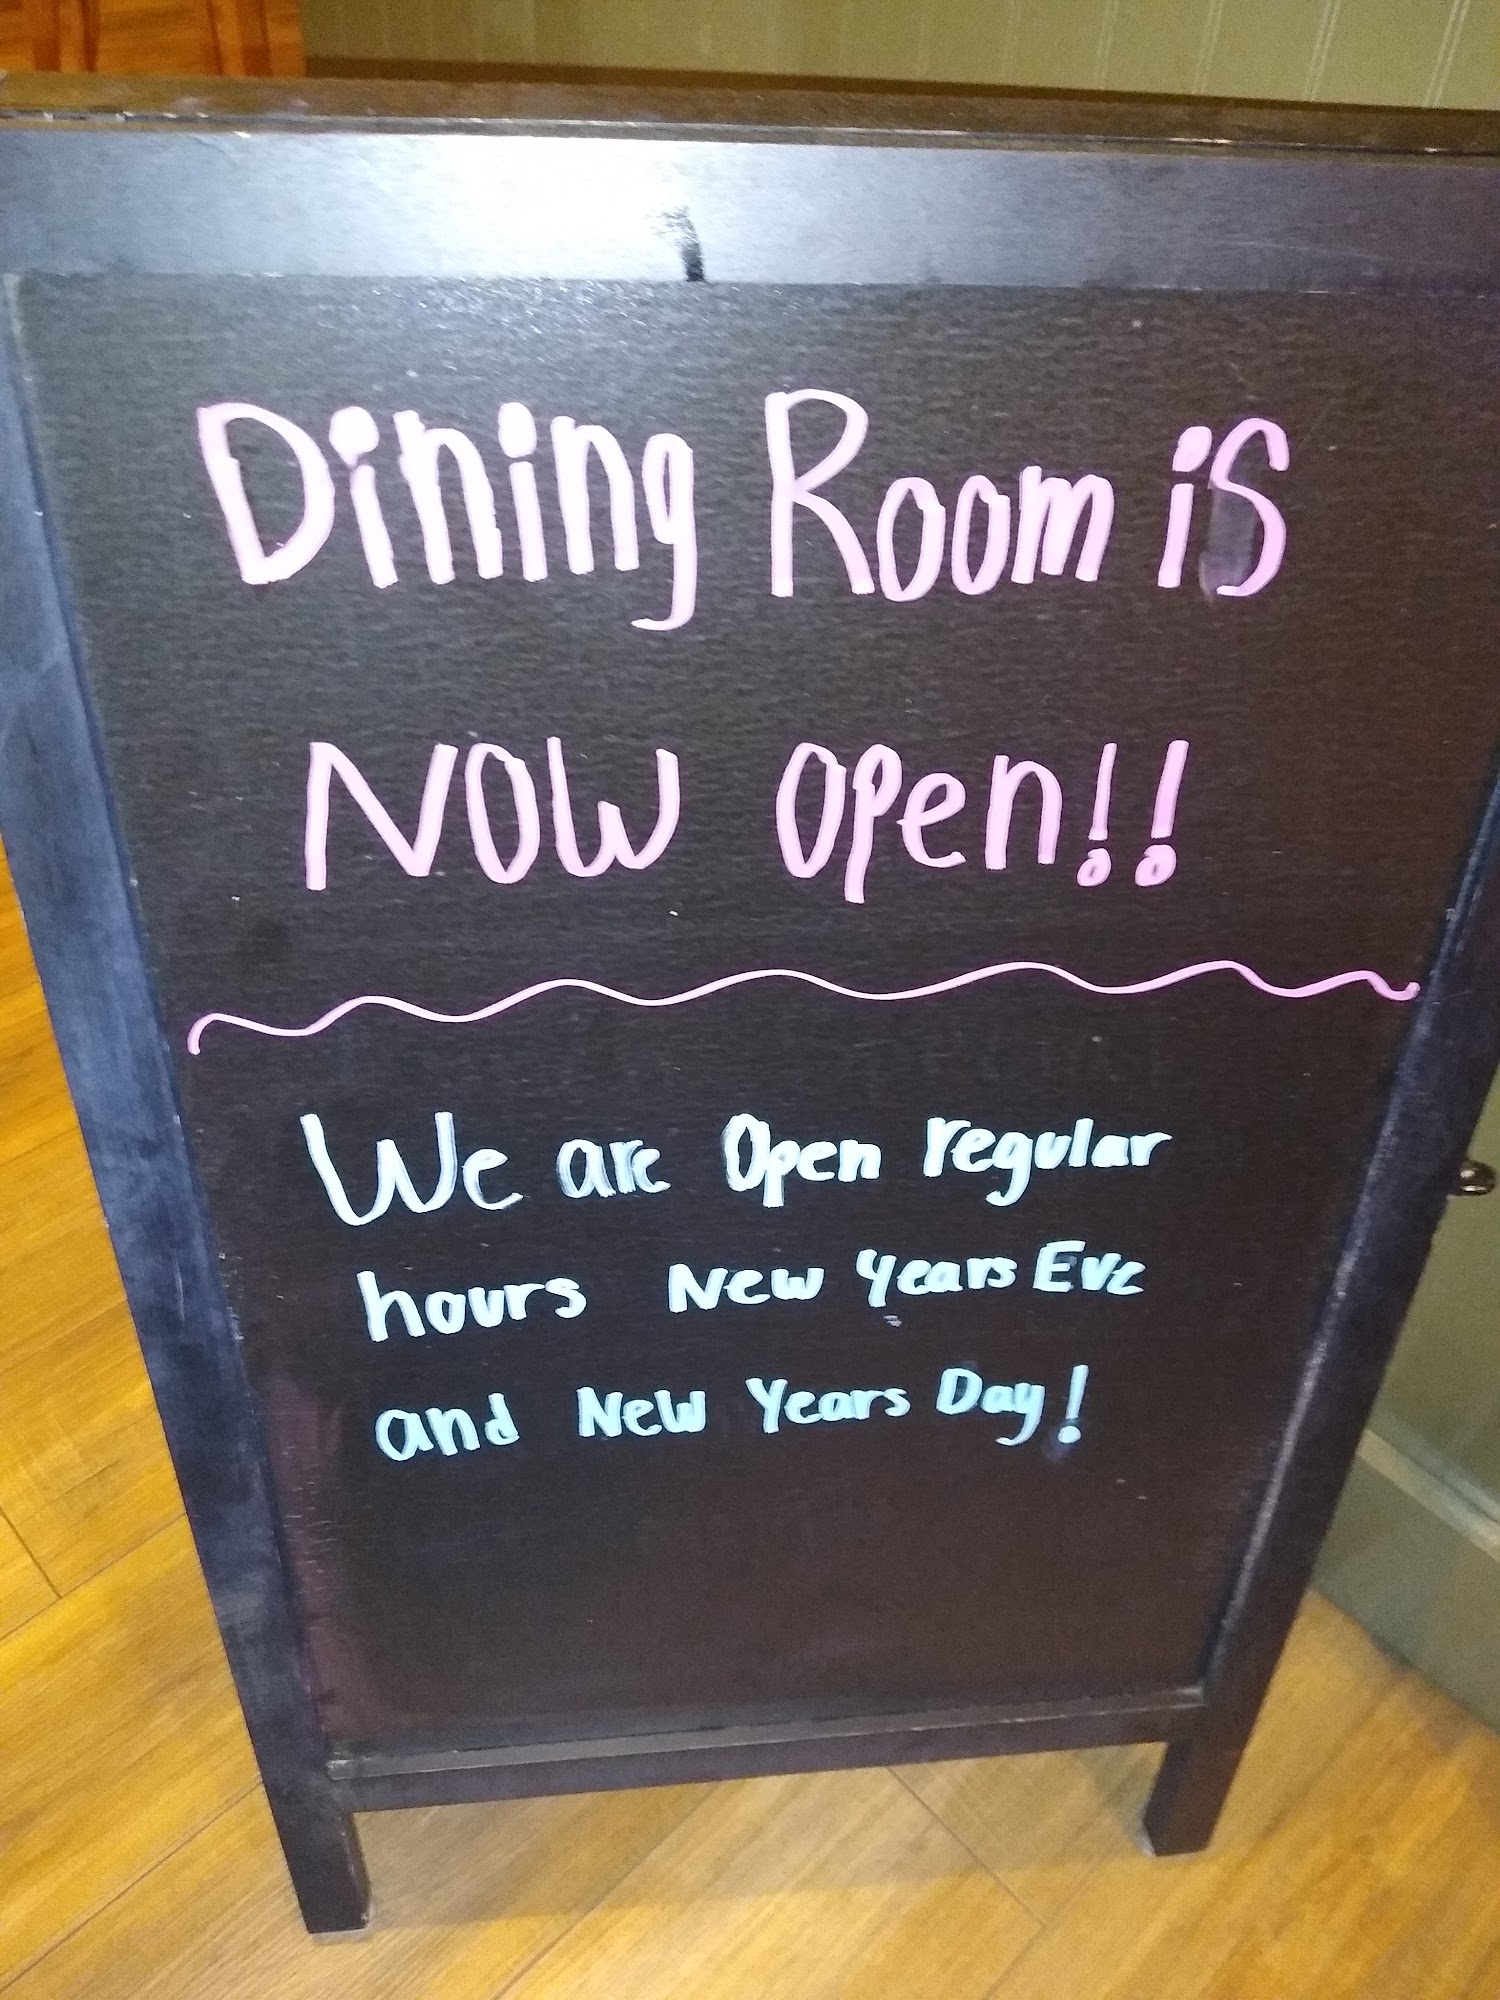 Dining Room is
NOW Open!!
We are Open regular
hours New Years Eve
and New Years Day!